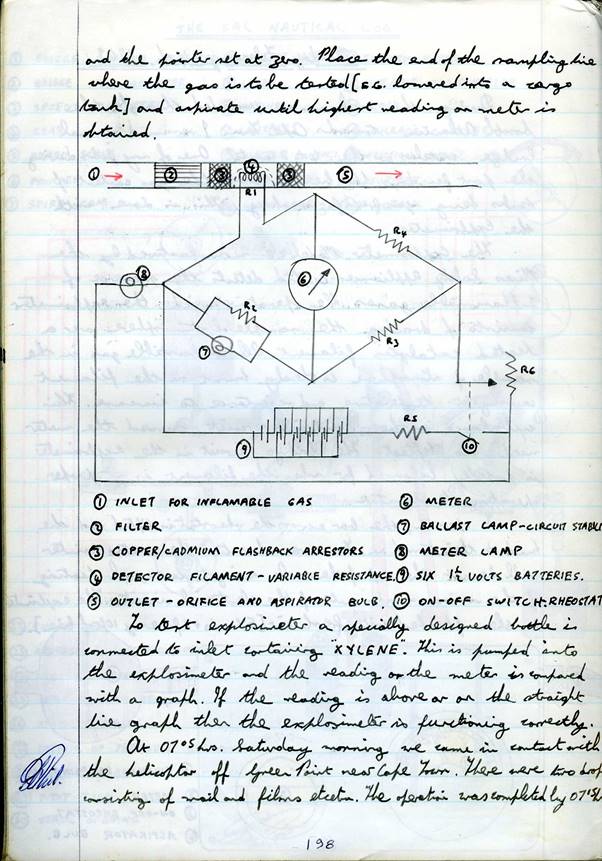 and the pointer set at zero. Place the end of the sampling line
where the gas is to be tested [E.G. lowered into a cargo
tank] and aspirate until highest reading on meter is
obtained.
① → ② ③ ④ ③ ⑤ →
R1
R4
⑧ ⑥
R2
⑦ R3
R6
R5
⑨ ⑩
① INLET FOR INFLAMABLE GAS
② FILTER
③ COPPER/CADMIUM FLASHBACK ARRESTORS
④ DETECTOR FILAMENT - VARIABLE RESISTANCE.
⑤ OUTLET - ORIFICE AND ASPIRATOR BULB.
⑥ METER
⑦ BALLAST LAMP-CIRCUIT STABLE
⑧ METER LAMP
⑨ SIX 1½ VOLTS BATTERIES.
⑩ ON-OFF SWITCH-RHEOSTAT
To test explosimeter a specially designed bottle is
connected to inlet containing XYLENE. This is pumped into
the explosimeter and the reading on the meter is compared
with a graph. If the reading is above or on the straight
line graph then the explosimeter is functioning correctly.
At 0705 hrs. Saturday morning we came in contact with
the helicopter off Green Point near Cape Town. There were two drop
consisting of mail and films etcetra. The operation was completed by
198